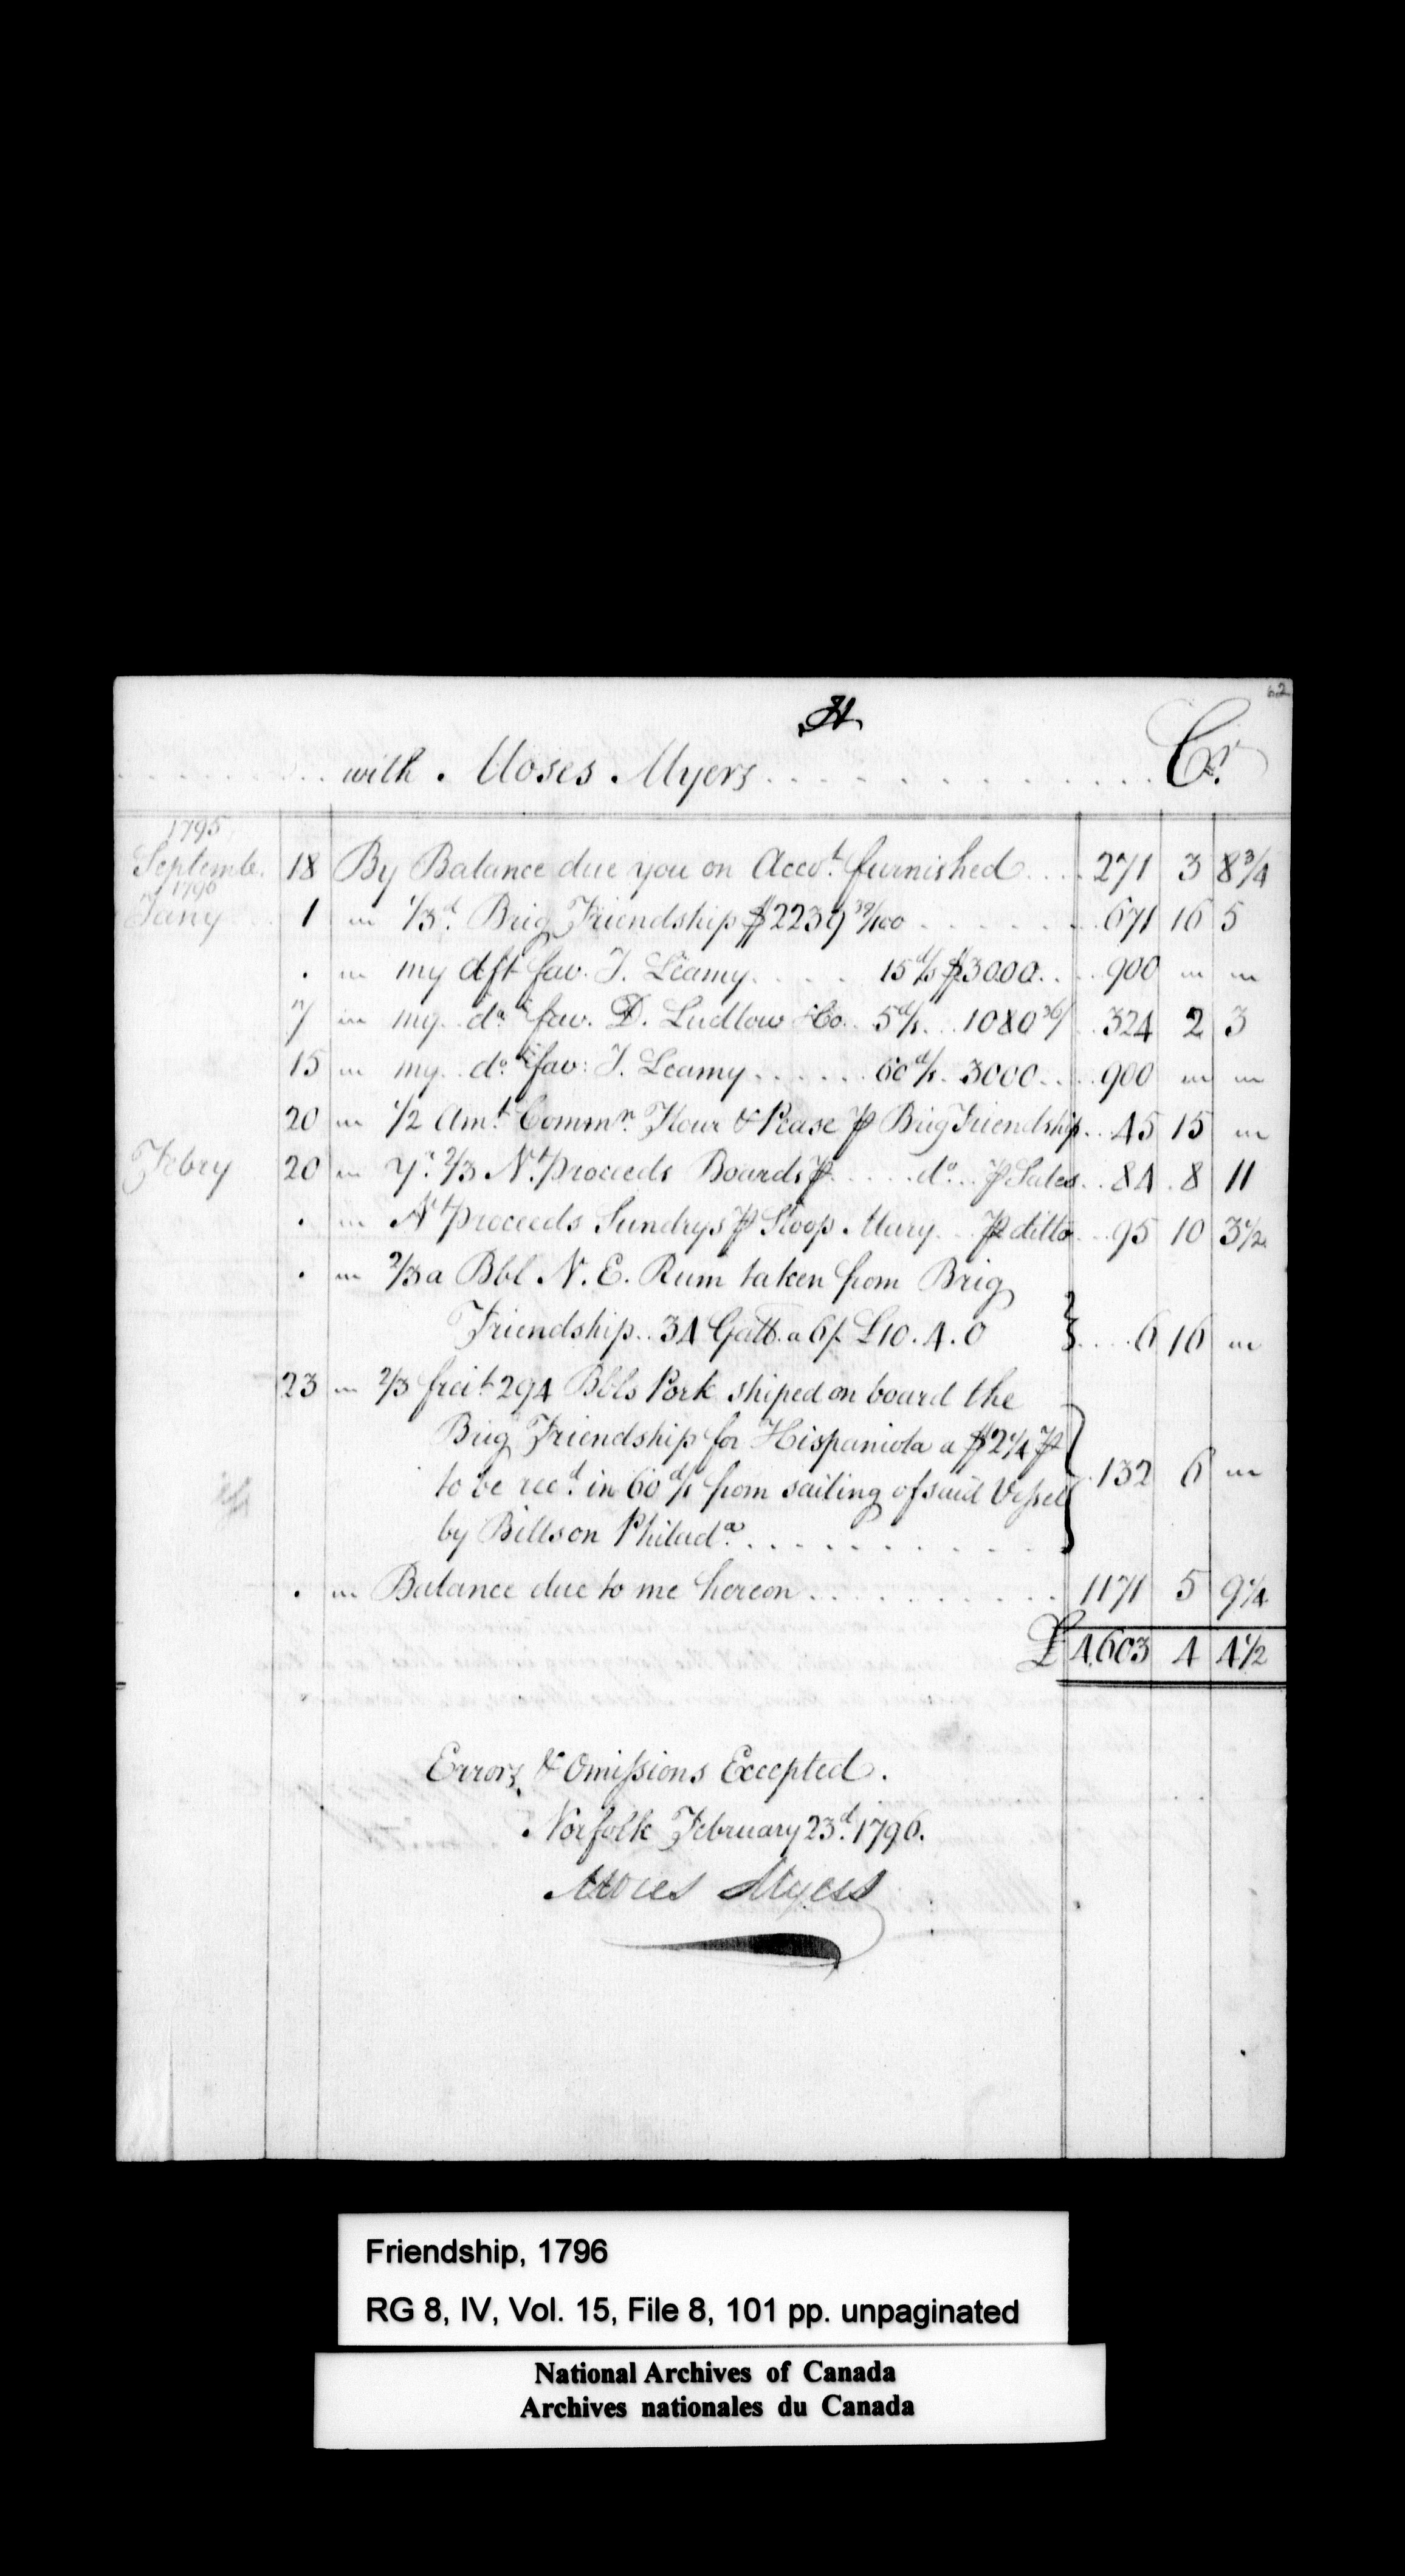 62
H
with Moses Myers Cr.
1795
Septembr. 18 By Balance due you on Accot. furnished 271 3 8 3/4
1796
Jany 1 " 1/3d. Brig Friendship $2239 39/100 671 16 5
. " my dft fav. J. Leamy 15 d/s $3000 900 " "
7 " my do. fav. D. Ludlow &Co. 5 d/s 1080 36/ 324 2 3
15 " my do. fav: J. Leamy 60 d/s 3000 900 " "
20 " 1/2 Amt. Commn. Flour & Pease ⅌ Brig Friendship 45 15 "
Febry 20 " Yr. 2/3 Nt. proceeds Boards ⅌ do. ⅌ Sales 84 8 11
. " Nt proceeds Sundrys ⅌ Sloop Mary ⅌ ditto 95 10 3 1/2
. " 2/3 a Bbl N. E. Rum taken from Brig
Friendship 34 Galls. a 6/ £10.4.0 6 16 "
23 " 2/3 freit 294 Bbls Pork shiped on board the
Brig Friendship for Hispaniola a $2 1/4 ⅌
to be recd. in 60 d/s from sailing of said Vessel 132 6 "
by Bills on Philada.
. " Balance due to me hereon 1171 5 9 1/4
£ 4,603 4 4 1/2
Errors & Omissions Excepted.
Norfolk February 23d. 1796.
Moses Myers
Friendship, 1796
RG 8, IV, Vol. 15, File 8, 101 pp. unpaginated
National Archives of Canada
Archives nationales du Canada